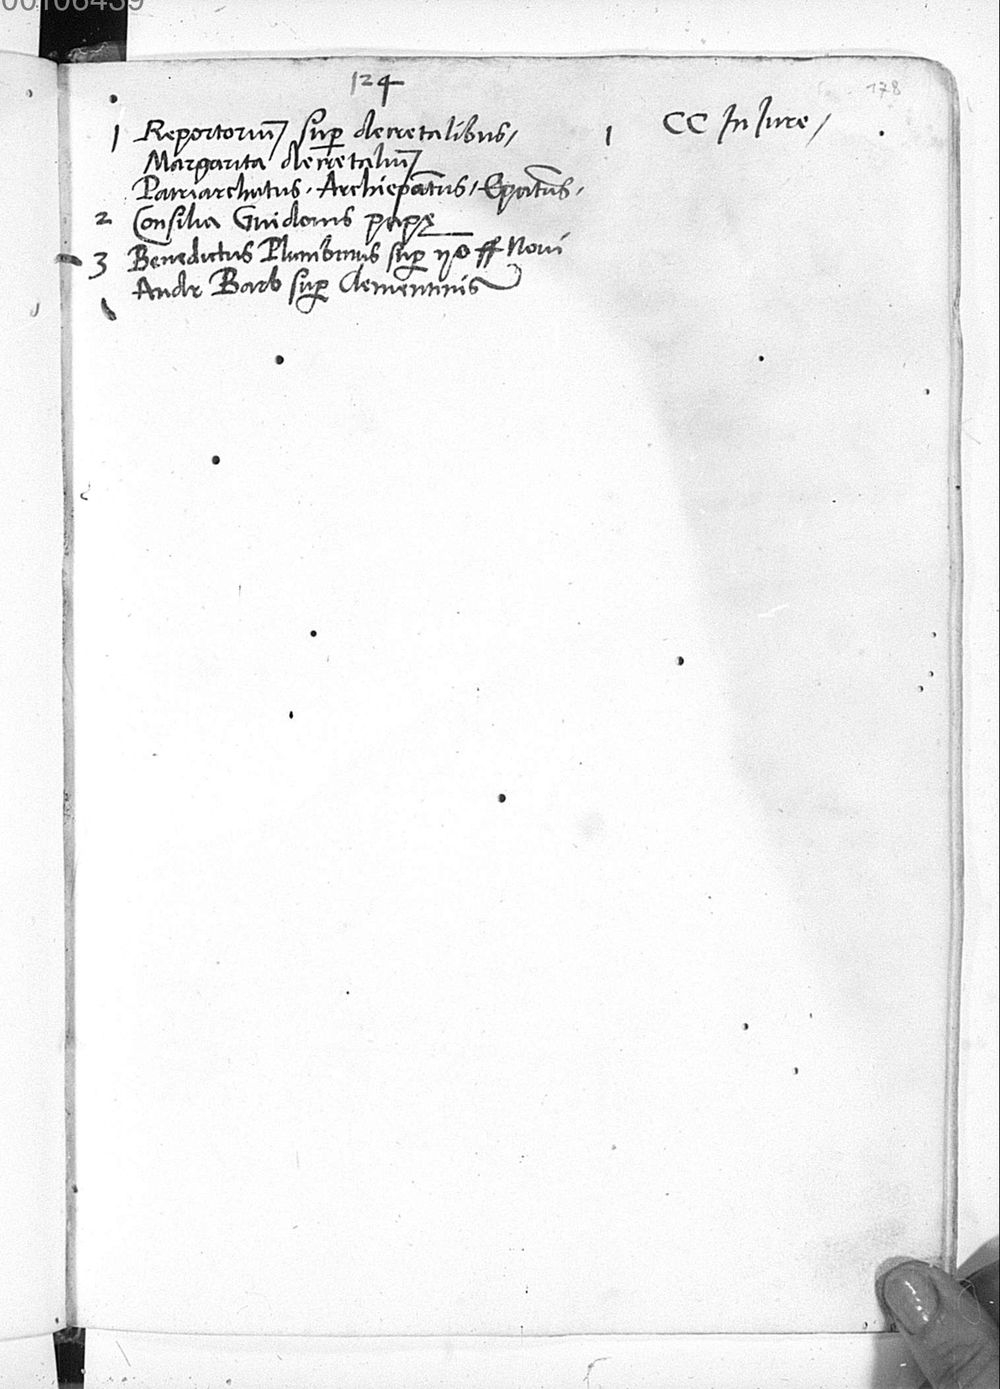 00106439
124
178
1 Reportoriu sup decretalibus / 1 CC In Iure /
Margarita decretaliu
Patriarchatus · Archiepatus / Epatus ·
2 Consilia Guidonis papę
3 Benedictus Plumbinus sup ff Noui
Andr Barb sup Clementinis